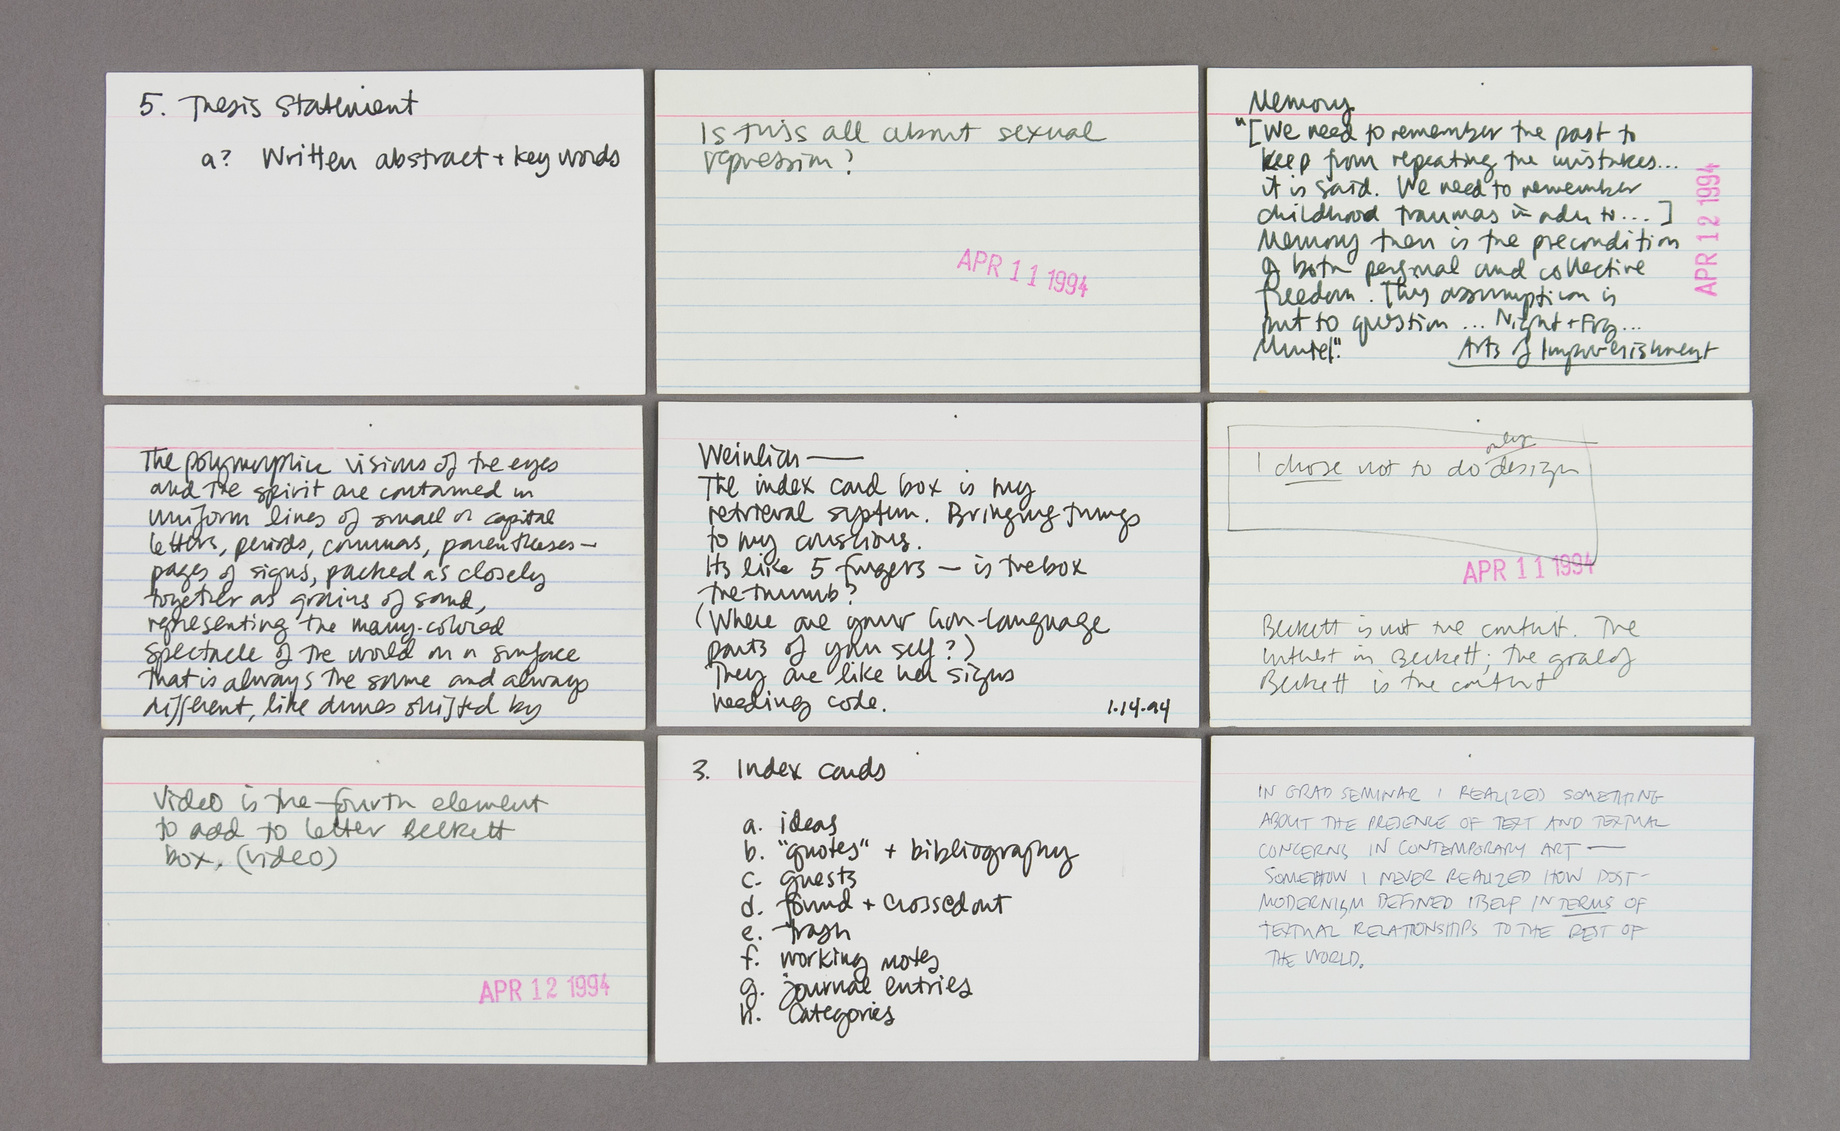 5. Thesis Statement
a? Written abstract + key words
Is this all about sexual
repression?
APR 11 1994
Memory
"[We need to remember the past to
keep from repeating the mistakes...
it is said. We need to remember
childhood traumas in order to...]
Memory then is the precondition
of both personal and collective
freedom. This assumption is
put to question ... Night + Fog...
Muriel".
Arts of Impoverishment
APR 12 1994
The polymorphic visions of the eyes
and the spirit are contained in
uniform lines of small or capital
letters, periods, commas, parentheses—
pages of signs, packed as closely
together as grains of sand,
representing the many-colored
spectacle of the world on a surface
that is always the same and always
different, like dunes shifted by
The index card box is my
retrieval system. Bringing things
to my conscious.
Its like 5 fingers — is the box
the thumb?
(Where are your non-language
parts of your self?)
They are like signs
needing code.
1.14.94
only
I chose not to do design
APR 11 1994
Beckett is not the content. The
interest in Beckett; the goal of
Beckett is the content
Video is the fourth element
to add to letter Beckett
box. (video)
APR 12 1994
3. Index cards
a. ideas
b. "quotes" + bibliography
c. guests
d. found + crossed out
e. trash
f. working notes
g. journal entries
h. categories
IN GRAD SEMINAR I REALIZED SOMETHING
ABOUT THE PRESENCE OF TEXT AND TEXTUAL
CONCERNS IN CONTEMPORARY ART —
SOMEHOW I NEVER REALIZED HOW POST-
MODERNISM DEFINED ITSELF IN TERMS OF
TEXTUAL RELATIONSHIPS TO THE REST OF
THE WORLD.